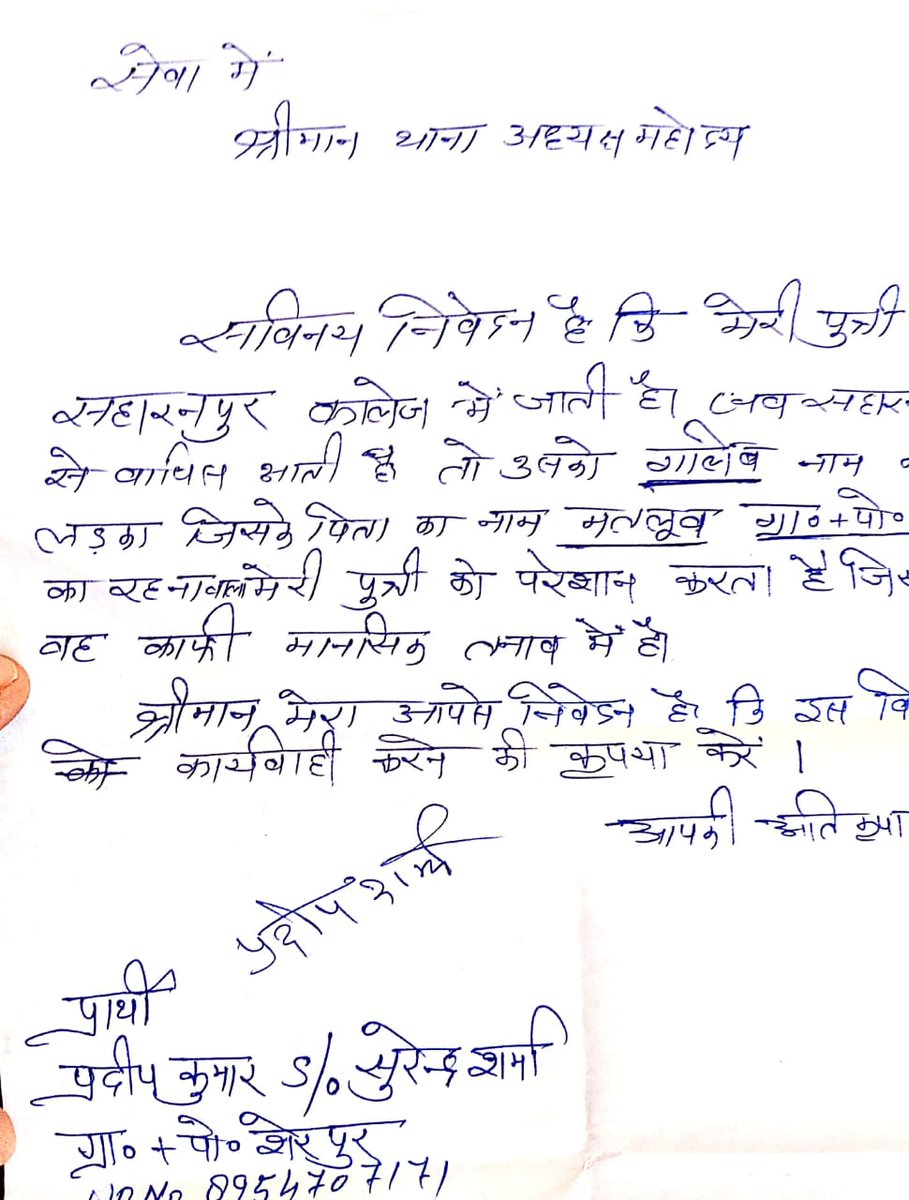 सेवा में
श्रीमान थाना अध्यक्ष महोदय
सविनय निवेदन है कि मेरी पुत्री
सहारनपुर कालेज में जाती है। जब सहारन
से वापिस आती है तो उसको गालिब नाम
लड़का जिसके पिता का नाम मतलूब ग्रा०+पो०
का रहनावाला मेरी पुत्री को परेशान करता है जिस
वह काफी मानसिक तनाव में है।
श्रीमान मेरा आपसे निवेदन है कि इस वि
को कार्यवाही करने की कृपया करें ।
आपकी अति कृपा
प्रदीप शर्मा
प्रार्थी
प्रदीप कुमार S/o सुरेन्द्र शर्मा
ग्रा० + पो० शेरपुर
Mo No 8954707171